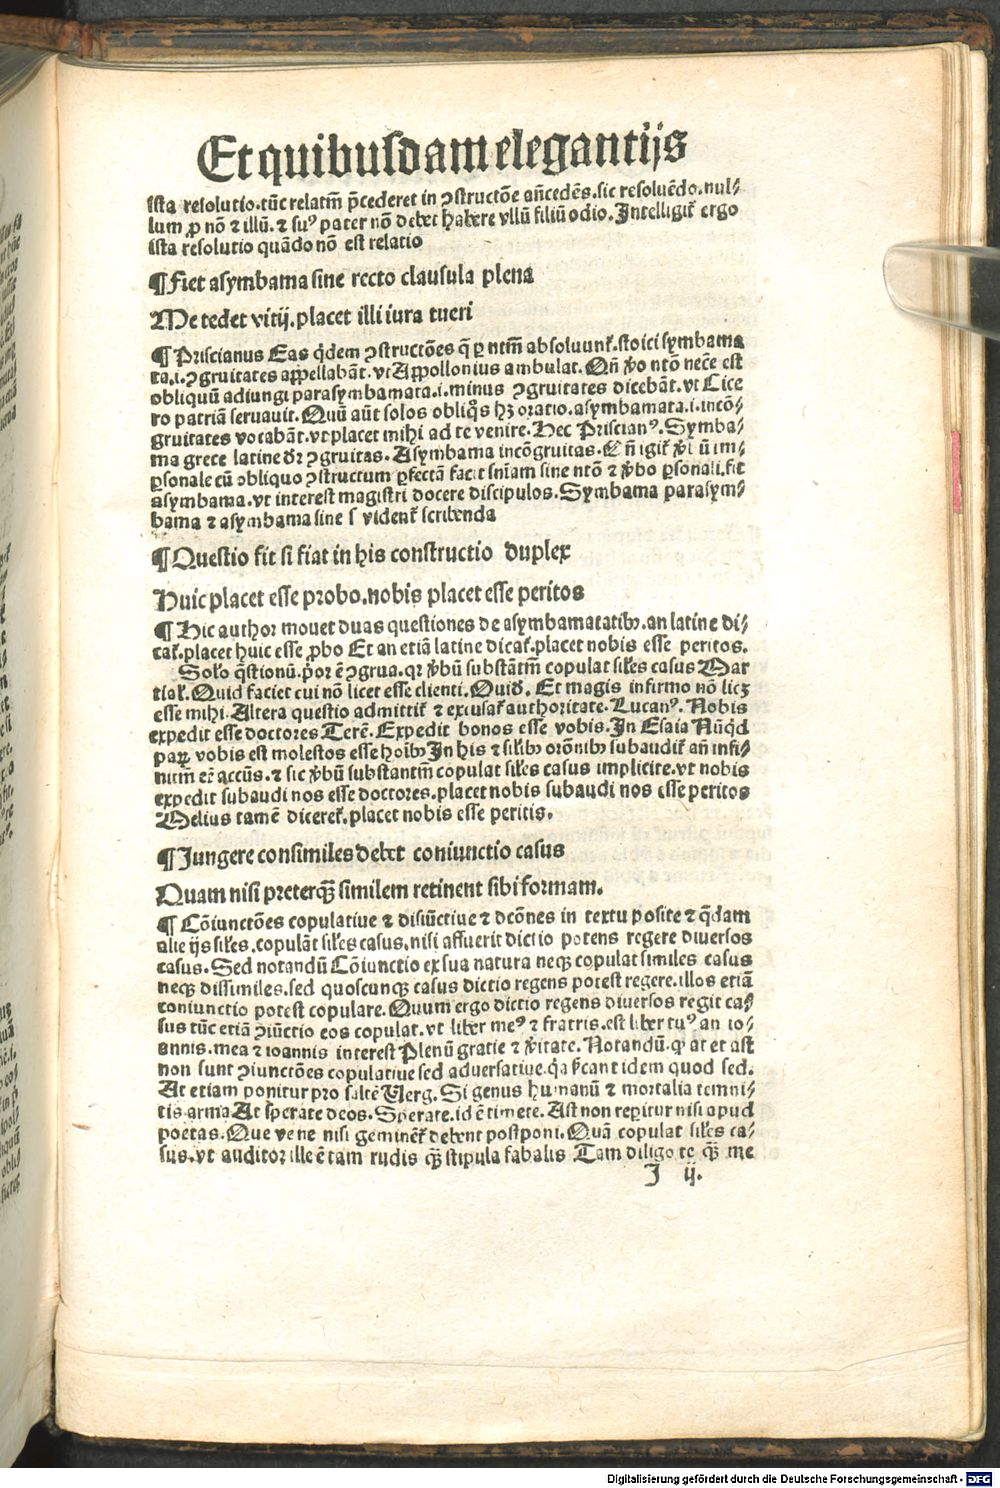 Et quibusdam elegantijs
ista resolutio.tũc relatm̃ p̃cederet in ꝯstructõe añcedẽs.sic resoluẽdo.nul⸗
lum ꝓ nõ ⁊ illũ.⁊ suꝰ pater nõ debet habere vllũ filiũ odio.Intelligit̃ ergo
ista resolutio quãdo nõ est relatio
¶Fiet asymbama sine recto clausula plena
Me tedet vitij.placet illi iura tueri
¶ Priscianus Eas q̃dem ꝯstructões q̃ ꝑ ntm̃ absoluunt̃.stoici symbama
ta.i.ꝯgruitates appellabãt.vt Appollonius ambulat.Qñ ṽo ntõ necẽ est
obliquũ adiungi parasymbamata.i.minus ꝯgruitates dicebãt.vt Cice
ro patriã seruauit.Quũ aũt solos obliq̃s hꝫ oratio.asymbamata.i.incõ⸗
gruitates vocabãt.vt placet mihi ad te venire.Hec Priscianꝰ.Symba⸗
ma grece latine dr̃ ꝯgruitas.Asymbama incõgruitas.C ñ igit̃ ṽl ũ im⸗
ꝑsonale cũ obliquo ꝯstructum ꝑfectã facit sniam sine ntõ ⁊ ṽbo ꝑsonali.fit
asymbama.vt interest magistri docere discipulos.Symbama parasym⸗
bama ⁊ asymbama sine s vident̃ scribenda
¶Questio fit si fiat in his constructio duplex
Huic placet esse probo.nobis placet esse peritos
¶ Hic author mouet duas questiones de asymbamatatibꝰ.an latine di⸗
cat̃.placet huic esse ꝓbo Et an etiã latine dicat̃.placet nobis esse peritos.
Solo q̃stionũ.p̃or ẽ ꝯgrua.qꝛ ṽbũ substãtm̃ copulat sil̃es casus Mar
tial̃.Quid faciet cui nõ licet esse clienti.Quid̃.Et magis infirmo nõ licꝫ
esse mihi.Altera questio admittit̃ ⁊ excusat̃ authoritate.Lucanꝰ.Nobis
expedit esse doctores Terẽ.Expedit bonos esse vobis.In Esaia Nũqd
parꝝ vobis est molestos esse hoĩbꝰ In his ⁊ sil̃ibꝰ orõnibꝰ subaudit̃ añ infi⸗
nitm̃ eĩ accũs.⁊ sic ṽbũ substantm̃ copulat sil̃es casus implicite.vt nobis
expedit subaudi nos esse doctores.placet nobis subaudi nos esse peritos
Melius tamẽ diceret̃.placet nobis esse peritis.
¶Jungere consimiles debet coniunctio casus
Quam nisi preterqȝ̃ similem retinent sibi formam.
¶ Cõiunctões copulatiue ⁊ disiũctiue ⁊ dcõnes in textu posite ⁊ q̃dam
alie ijs sil̃es.copulãt sil̃es casus.nisi affuerit dictio potens regere diuersos
casus.Sed notandũ Cõiunctio ex sua natura neqȝ copulat similes casus
neqȝ dissimiles.sed quoscunqȝ casus dictio regens potest regere.illos etiã
coniunctio potest copulare.Quum ergo dictio regens diuersos regit ca⸗
sus tũc etiã ꝯiũctio eos copulat.vt liber meꝰ ⁊ fratris.est liber tuꝰ an io⸗
annis.mea ⁊ ioannis interest Plenũ gratie ⁊ ṽitate.Notandũ.ꝙ at et ast
non sunt ꝯiunctões copulatiue sed aduersatiue.q̃a s̃cant idem quod sed.
At etiam ponitur pro saltẽ Verg.Si genus humanũ ⁊ mortalia temni⸗
tis arma At sperate deos.Sperate.id ẽ timete.Ast non reꝑitur nisi apud
poetas.Que ve ne nisi geminẽt̃ debent postponi.Quã copulat sil̃es ca⸗
sus.vt auditor ille ẽ tam rudis qȝ̃ stipula fabalis Tam diligo te qȝ̃ me
J ij.
Digitalisierung gefördert durch die Deutsche Forschungsgemeinschaft - DFG